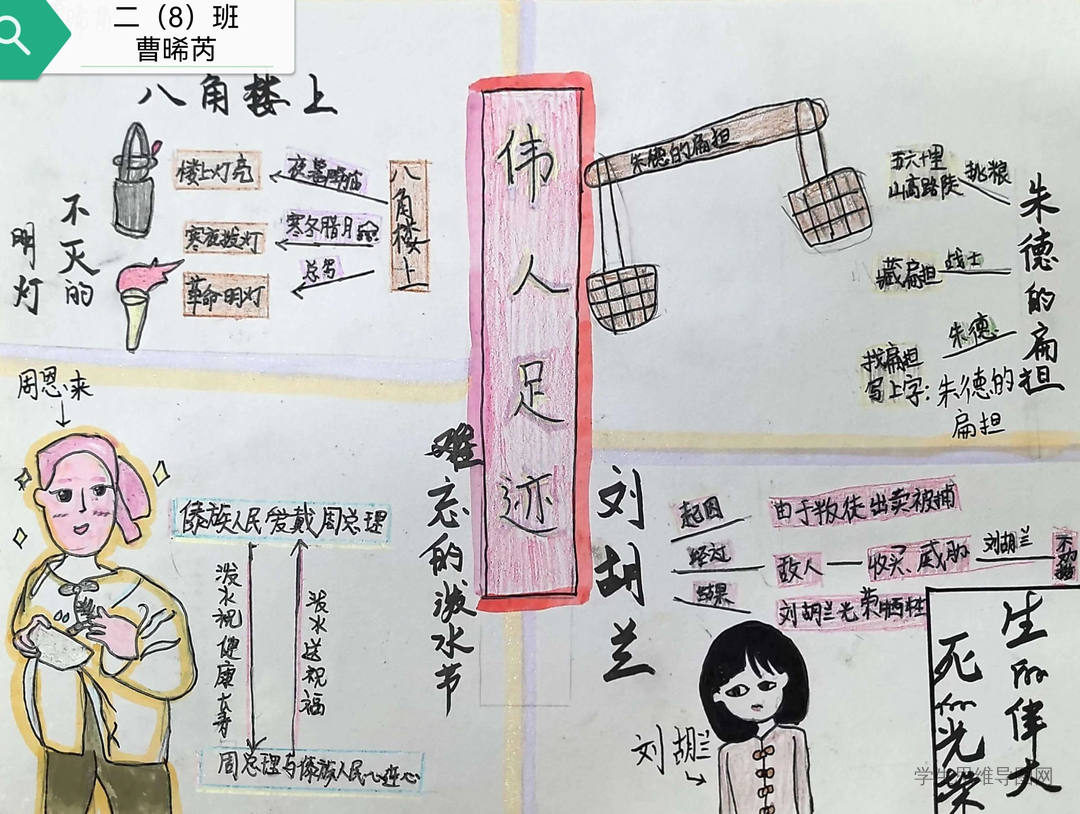 二（8）班
曹晞芮
伟人足迹
八角楼上
八角楼上
夜幕降临
楼上灯亮
寒冬腊月
寒夜拨灯
总写
革命明灯
不灭的
明灯
朱德的扁担
朱德的扁担
五六十里
山高路陡
挑粮
藏扁担
战士
朱德
找扁担
写上字：朱德的
扁担
难忘的泼水节
周恩来
傣族人民爱戴周总理
泼水祝健康长寿
泼水送祝福
周总理与傣族人民心连心
刘胡兰
起因
由于叛徒出卖被捕
经过
敌人
收买、威胁
刘胡兰
结果
刘胡兰光荣牺牲
刘胡兰
生的伟大
死的光荣
学生思维导图网